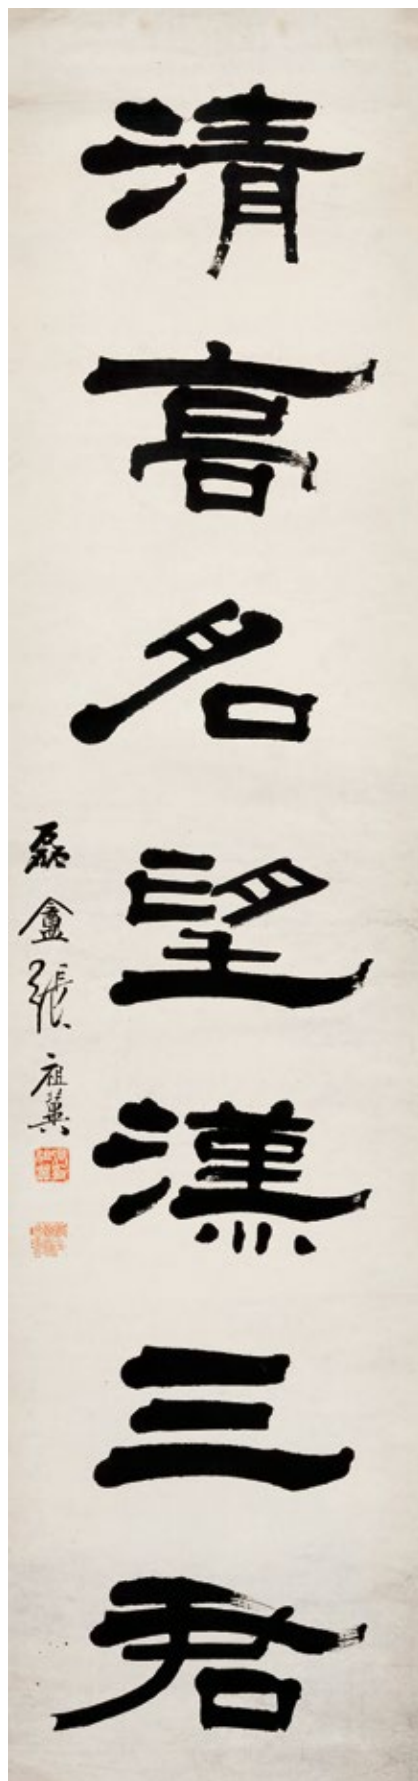 清高名望漢三君
磊盦張祖翼